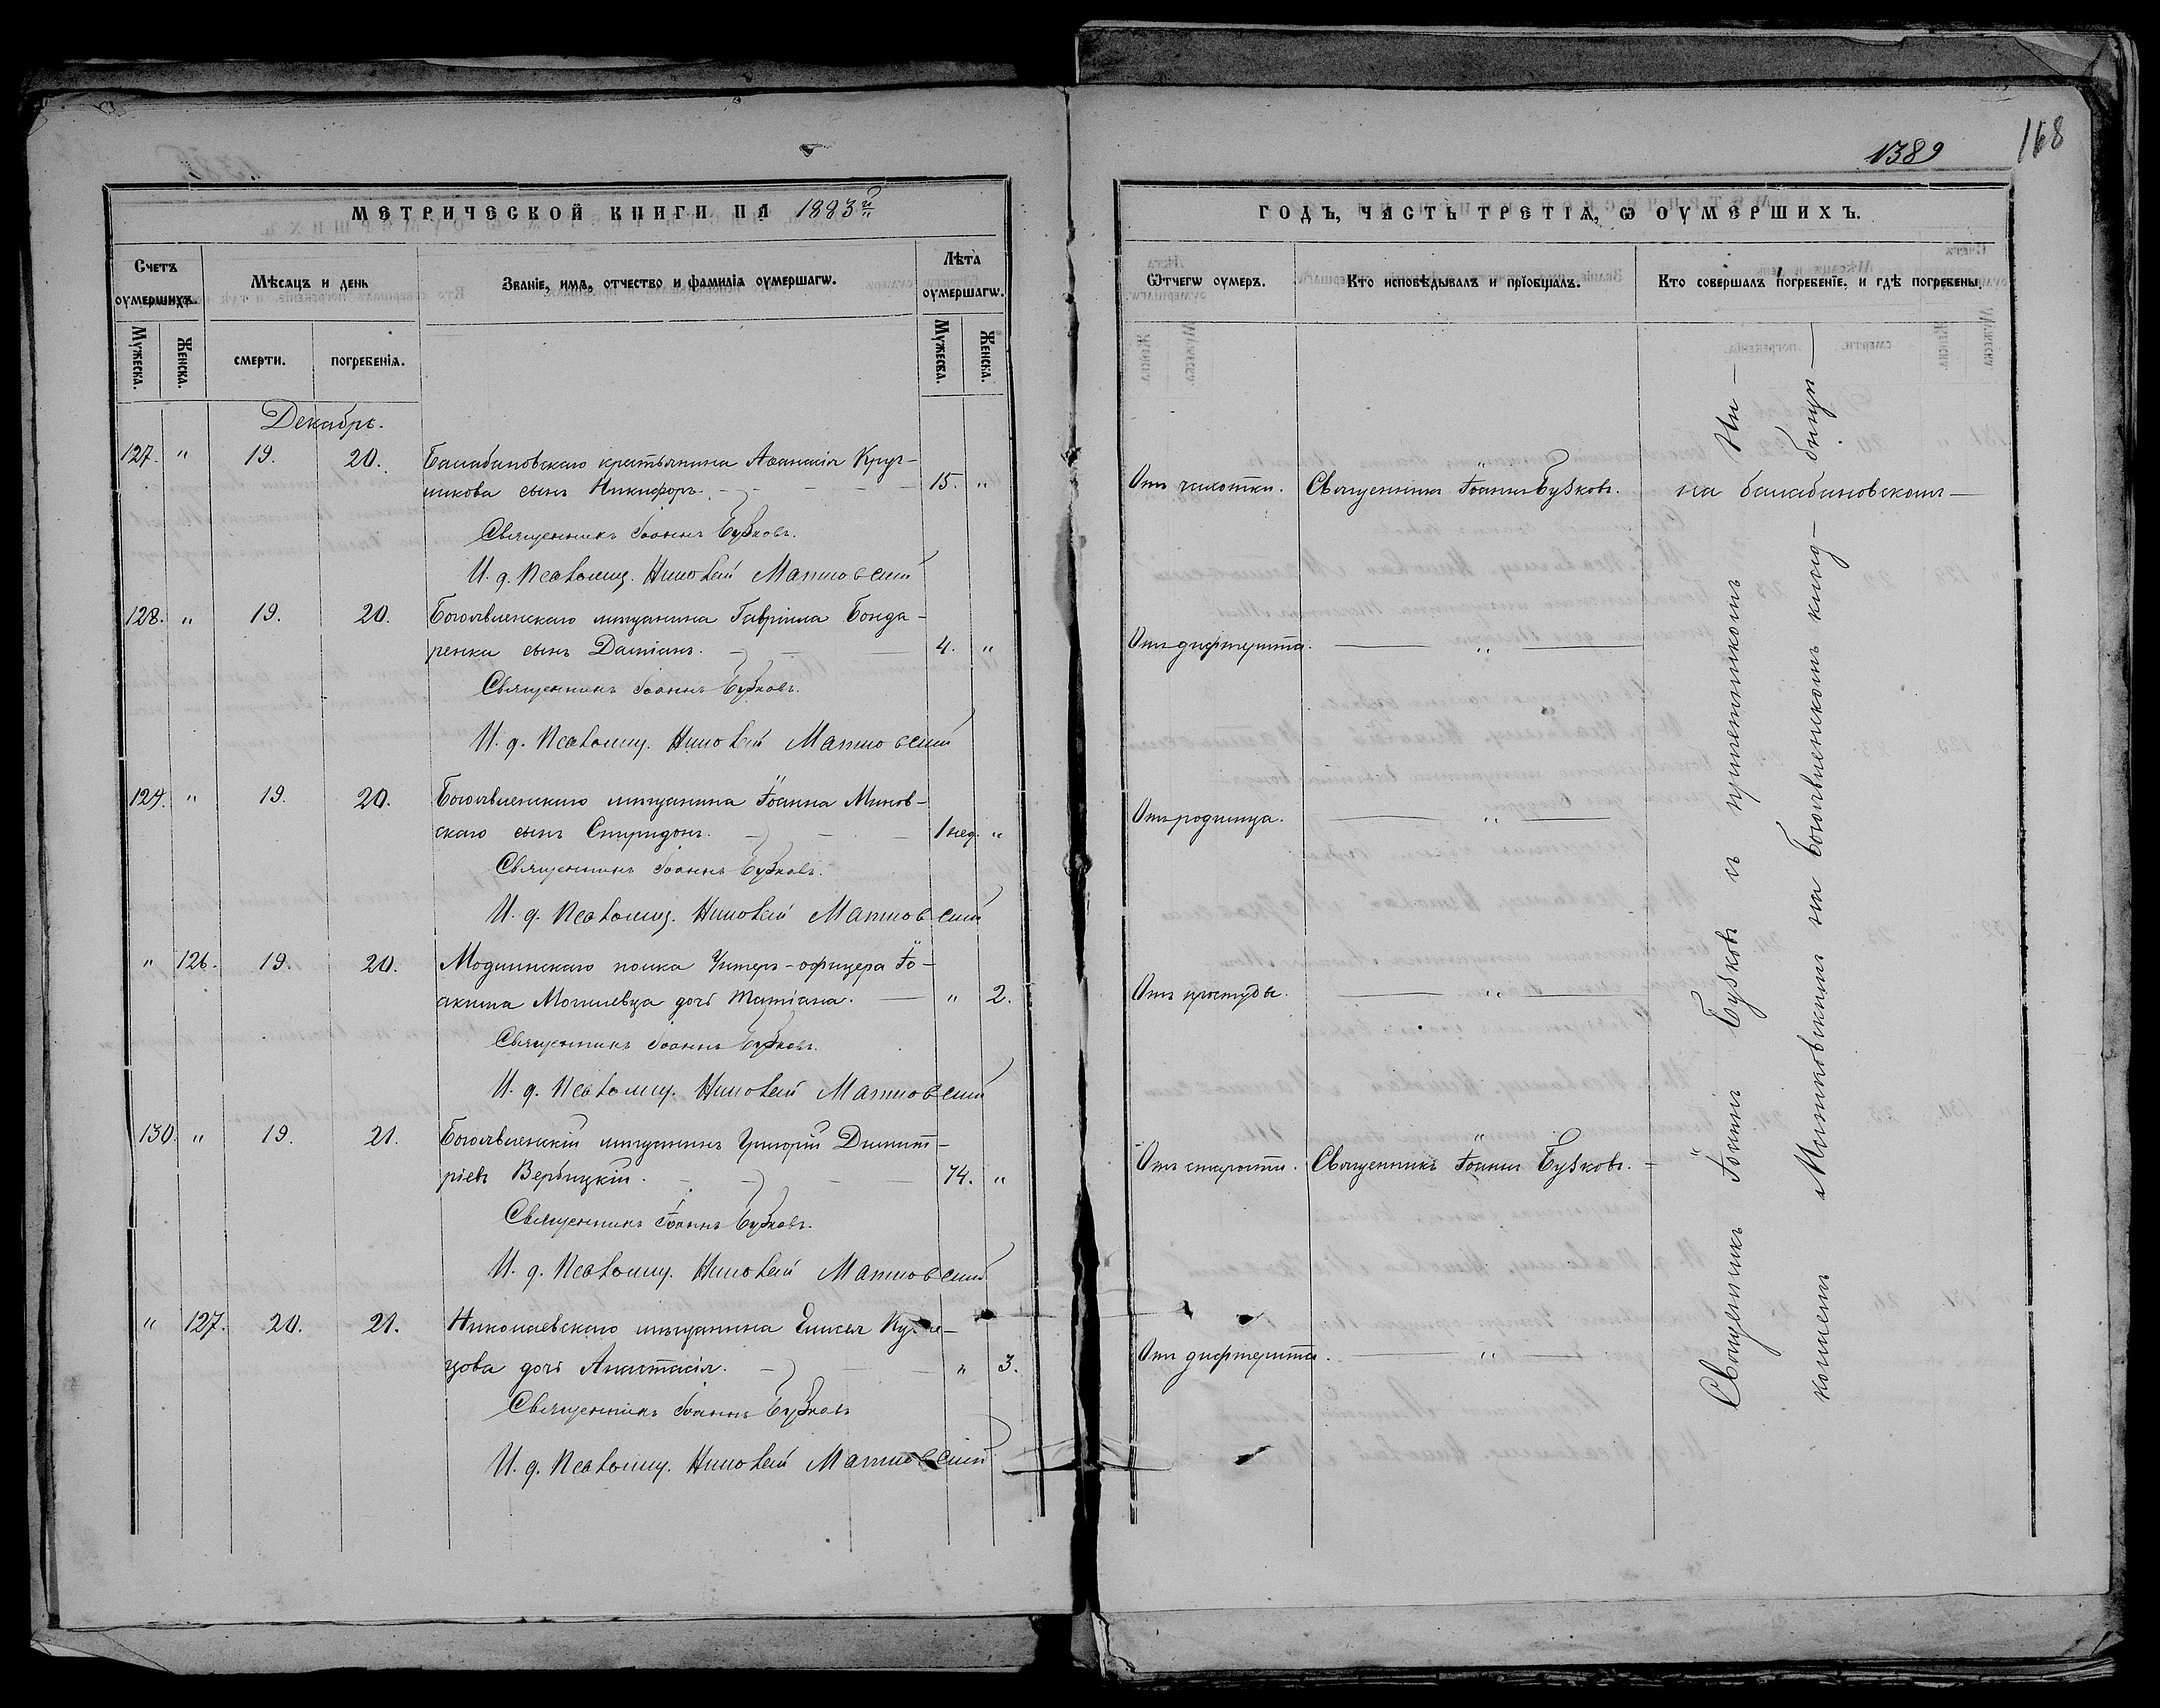 МЕТРИЧЕСКОЙ КНИГИ НА 1883й
Счетъ оумершихъ.
Мѣсяцъ и день
Званіе, имя, отчество и фамилія оумершагѡ.
Лѣта оумершагѡ.
Мужеска.
Женска.
смерти.
погребенія.
Мужеска.
Женска.
Декабрь.
127. " 19. 20. Балабановскаго крестьянина Аѳанасія Круг-
ликова сынъ Никифоръ. 15. "
Священникъ Іоаннъ Бузковъ.
И. д. Псаломщ. Николай Матковскій
128. " 19. 20. Богоявленскаго мѣщанина Гавріила Бонда-
ренка сынъ Даміанъ. 4. "
Священникъ Іоаннъ Бузковъ.
И. д. Псаломщ. Николай Матковскій
129. " 19. 20. Богоявленскаго мѣщанина Іоанна Минов-
скаго сынъ Спиридонъ. 1 нед. "
Священникъ Іоаннъ Бузковъ.
И. д. Псаломщ. Николай Матковскій
" 126. 19. 20. Модлинскаго полка Унтеръ-офицера Іо-
акима Могилевца дочь Татіана. " 2.
Священникъ Іоаннъ Бузковъ.
И. д. Псаломщ. Николай Матковскій
130. " 19. 21. Богоявленскій мѣщанинъ Григорій Димит-
ріевъ Вербицкій. 74. "
Священникъ Іоаннъ Бузковъ.
И. д. Псаломщ. Николай Матковскій
" 127. 20. 21. Николаевскаго мѣщанина Елисея
цова дочь Анастасія. " 3.
Священникъ Іоаннъ Бузковъ
И. д. Псаломщ. Николай Матковскій
1389
168
ГОДЪ, ЧАСТЬ ТРЕТІЯ, Ѡ ОУМЕРШИХЪ.
Ѿтчегѡ оумеръ.
Кто исповѣдывалъ и пріобщалъ.
Кто совершалъ погребеніе, и гдѣ погребены.
Отъ чахотки. Священникъ Іоаннъ Бузковъ. на балабановскомъ
Отъ дифтерита. "
Отъ родимца. "
Отъ простуды. "
Отъ старости. Священникъ Іоаннъ Бузковъ.
Отъ дифтерита. "
Священникъ Іоаннъ Бузковъ съ причетникомъ Ни-
колаемъ Матковскимъ на Богоявленскомъ клад-бищѣ